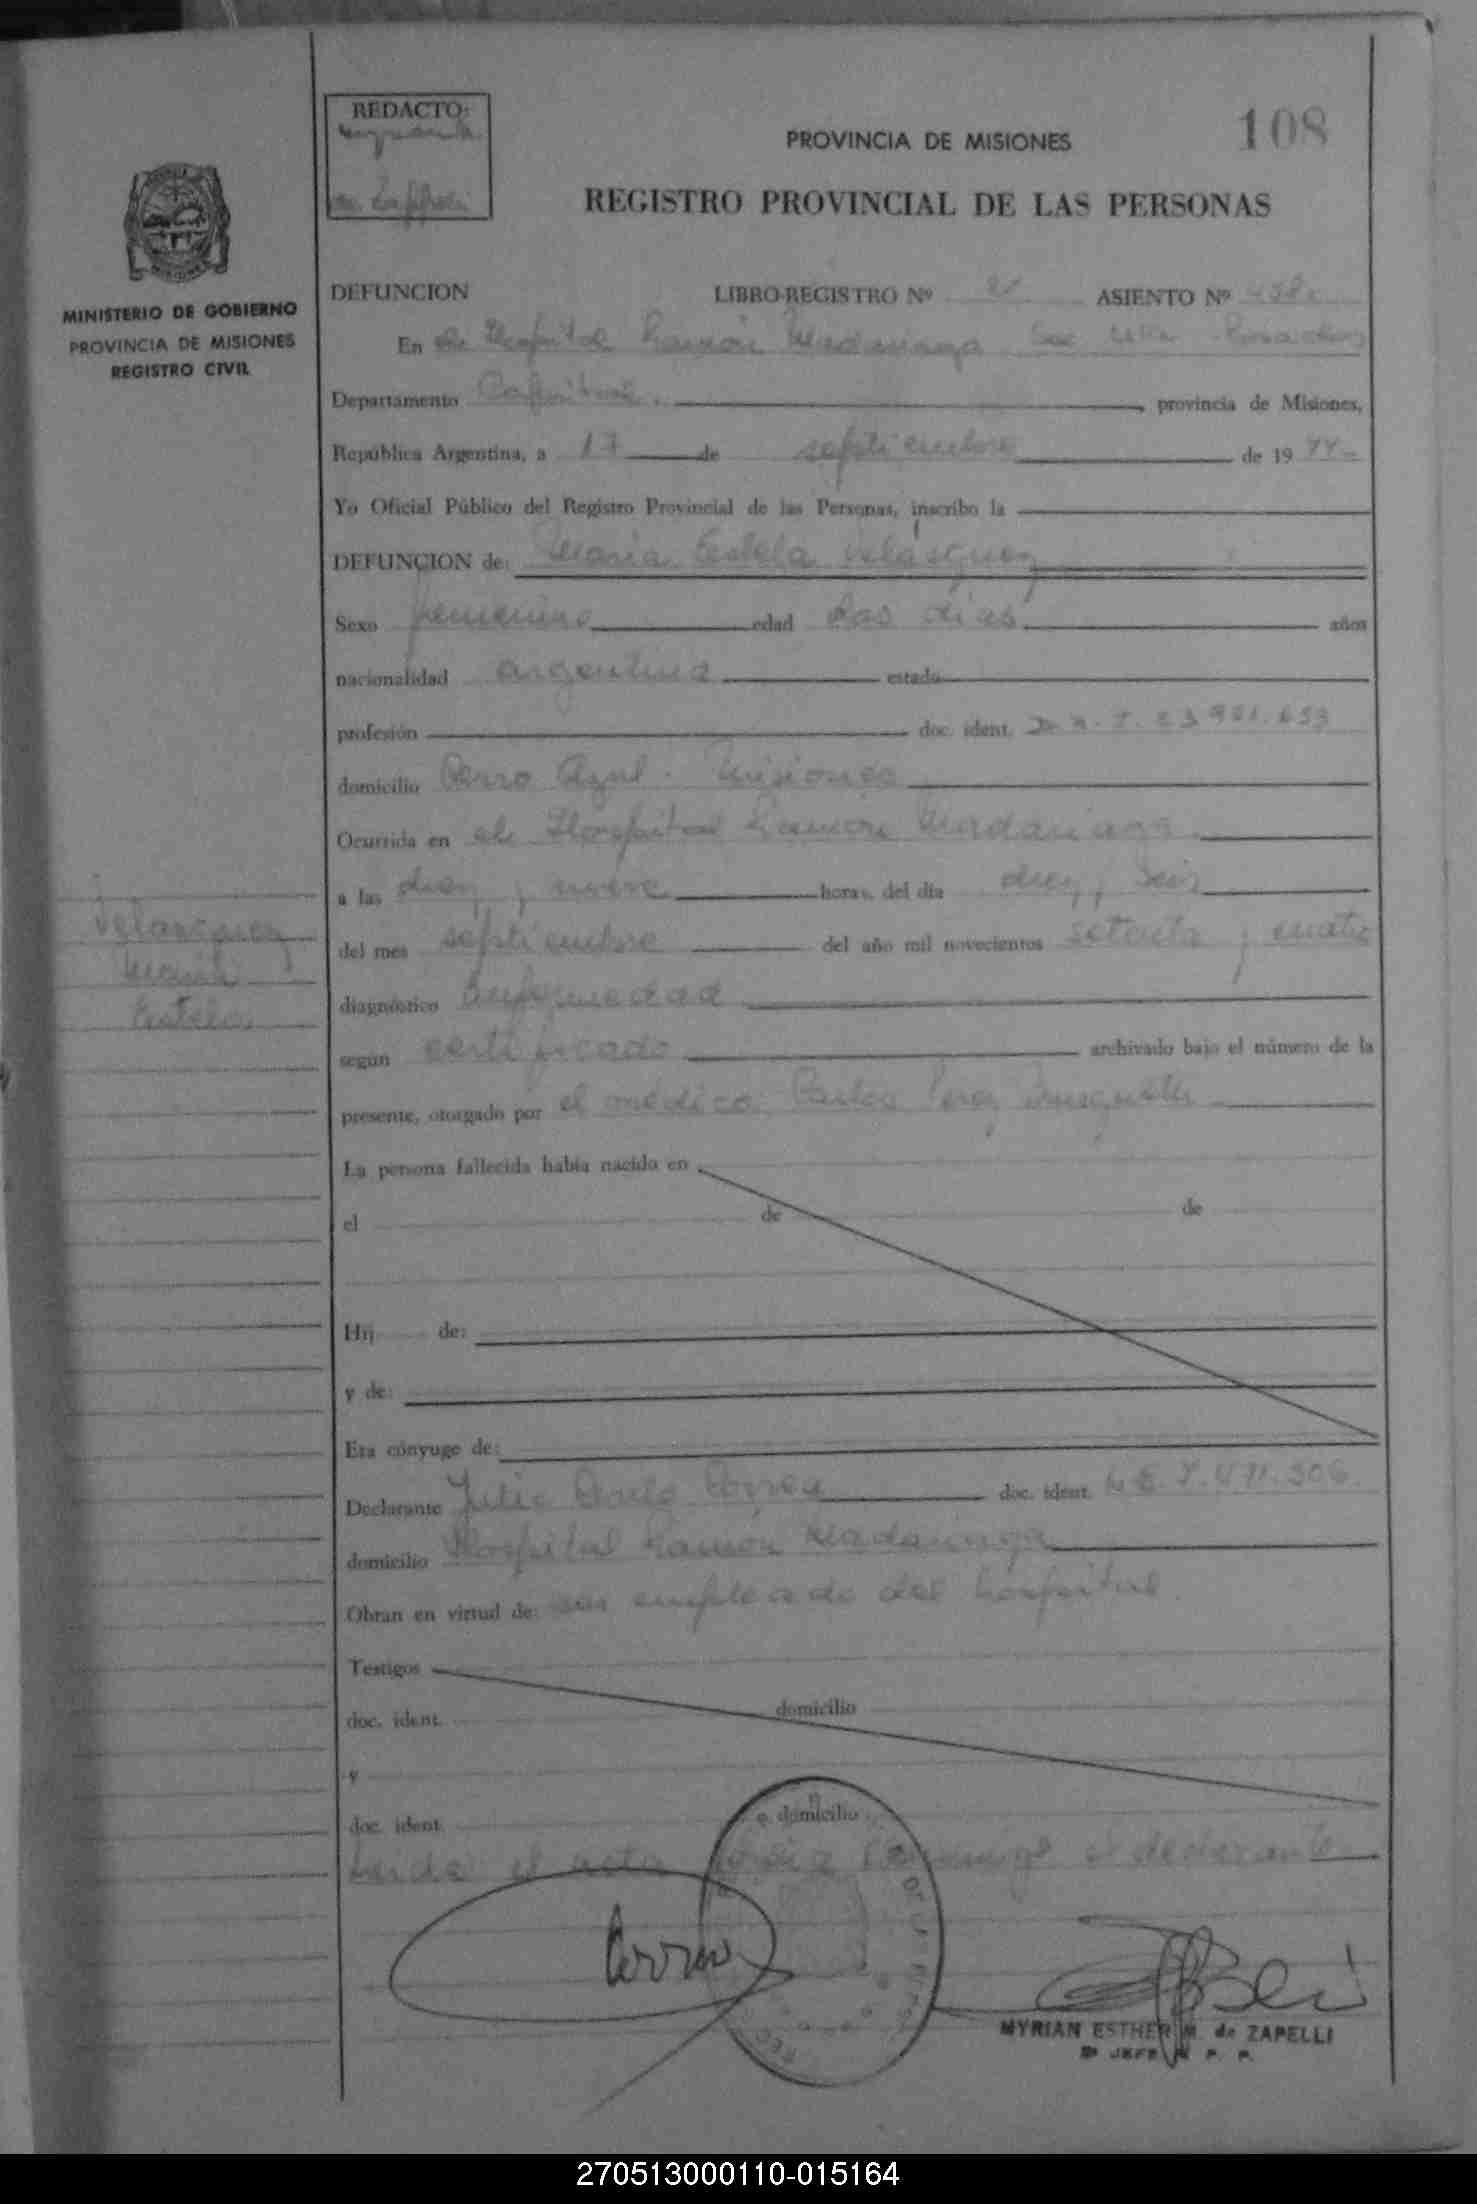 REDACTO:
de Zappelli
108
PROVINCIA DE MISIONES
REGISTRO PROVINCIAL DE LAS PERSONAS
MINISTERIO DE GOBIERNO
PROVINCIA DE MISIONES
REGISTRO CIVIL
DEFUNCION LIBRO-REGISTRO Nº ASIENTO Nº
En el Hospital Ramón Madariaga
Departamento Capital, provincia de Misiones,
República Argentina, a 17 de septiembre de 19
Yo Oficial Público del Registro Provincial de las Personas, inscribo la
DEFUNCION de: Maria Estela Velásquez
Sexo femenino edad dos dias años
nacionalidad argentina estado
profesión doc. ident.
domicilio Cerro Azul - Misiones
Ocurrida en el Hospital Ramón Madariaga
a las diez y nueve horas, del día diez y seis
del mes septiembre del año mil novecientos setenta y cuatro
Velazquez
María
Estela
diagnóstico enfermedad
según certificado archivado bajo el número de la
presente, otorgado por el médico Carlos Perez
La persona fallecida había nacido en
el de de
Hij de:
y de:
Era cónyuge de:
Declarante Julio Correa doc. ident. L.E. 7.471.506
domicilio Hospital Ramón Madariaga
Obran en virtud de: ser empleado del hospital.
Testigos
doc. ident. domicilio
y
doc. ident. domicilio
Leida el acta firma conmigo el declarante
MYRIAN ESTHER M. de ZAPELLI
270513000110-015164